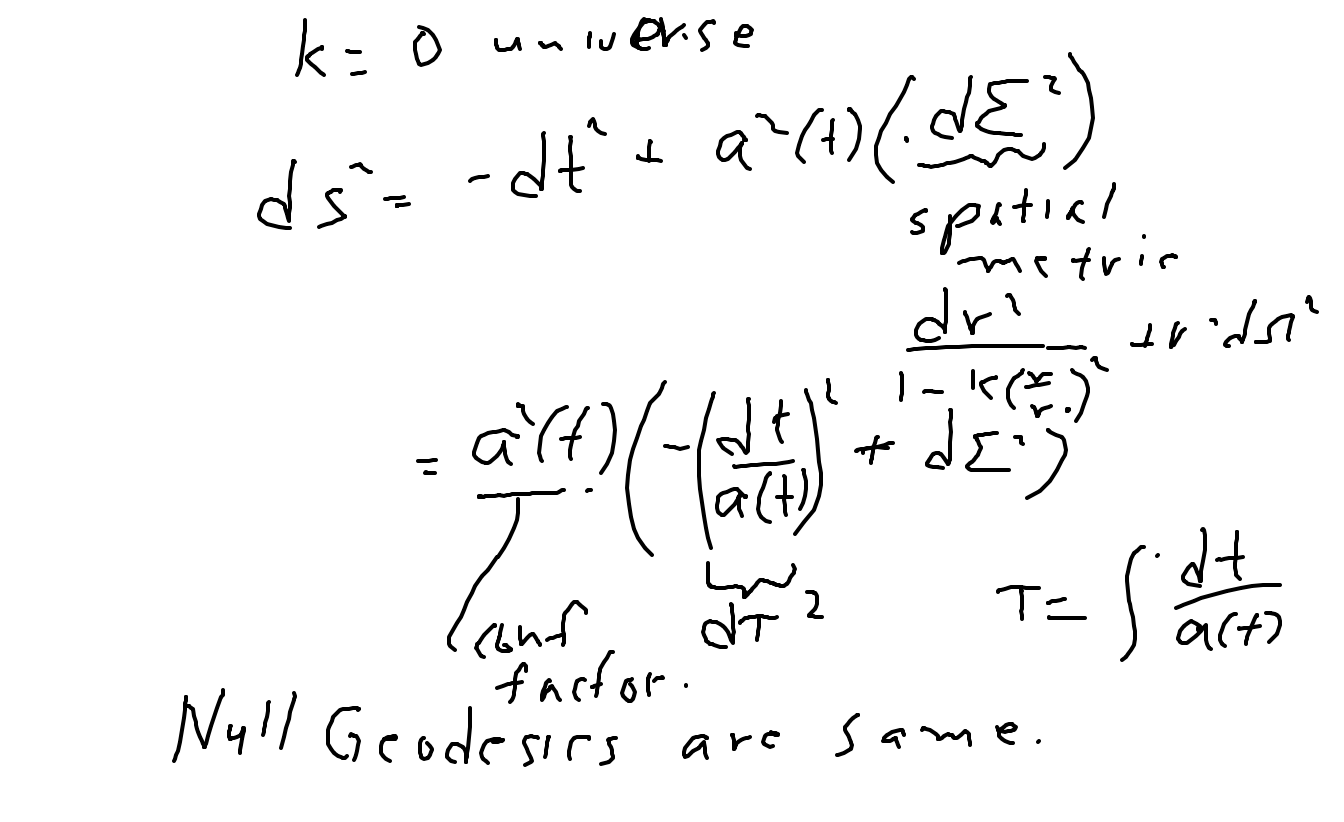 k = 0 universe
ds² = -dt² + a²(t)(dΣ²)
spatial
metric
dr² / (1 - k(r/r₀)²) + r²dΩ²
= a²(t)(-(dt/a(t))² + dΣ²)
dT² T = ∫ dt/a(t)
conf
factor.
Null Geodesics are same.